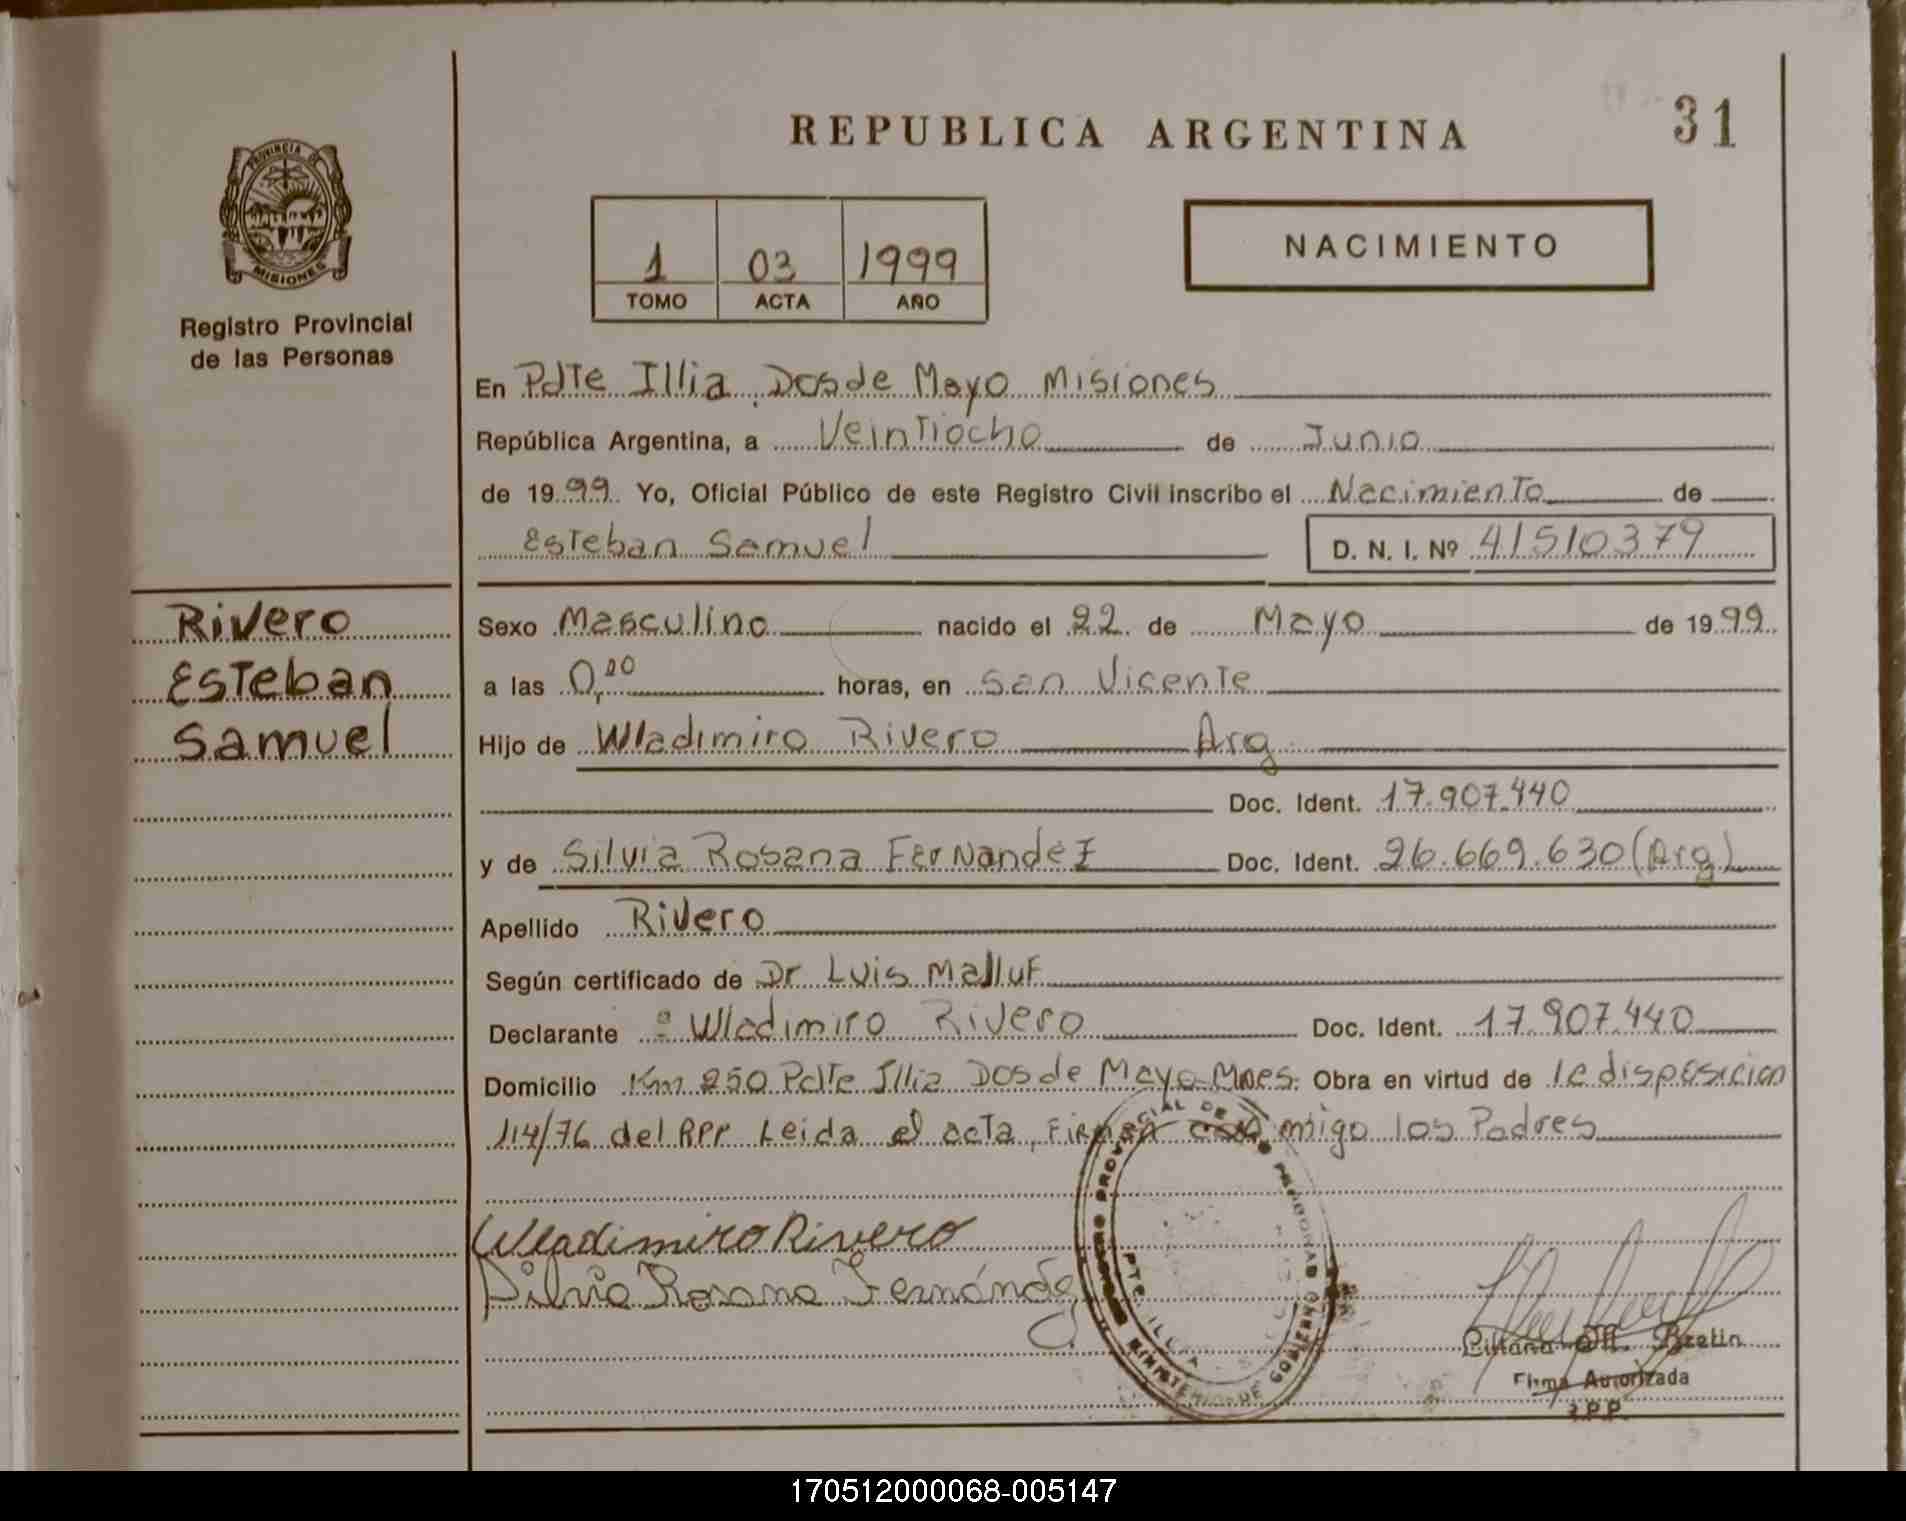 REPUBLICA ARGENTINA
31
PROVINCIA DE
MISIONES
Registro Provincial
de las Personas
1 03 1999
TOMO ACTA AÑO
NACIMIENTO
En Pdte Illia Dos de Mayo Misiones
República Argentina, a Veintiocho de Junio
de 1999 Yo, Oficial Público de este Registro Civil inscribo el Nacimiento de
Esteban Samuel D. N. I. Nº 41510379
Rivero
Esteban
Samuel
Sexo Masculino nacido el 22 de Mayo de 1999
a las 0,20 horas, en San Vicente
Hijo de Wladimiro Rivero Arg
Doc. Ident. 17.907.440
y de Silvia Rosana Fernandez Doc. Ident. 26.669.630 (Arg)
Apellido Rivero
Según certificado de Dr Luis Malluf
Declarante : Wladimiro Rivero Doc. Ident. 17.907.440
Domicilio Km 250 Pdte Illia Dos de Mayo Mnes. Obra en virtud de la disposicion
114/76 del RPP Leida el acta, Firman conmigo los Padres
Wladimiro Rivero
Silvia Rosana Fernández
PROVINCIAL DE PERSONAS
PTE. ILLIA
MINISTERIO DE GOBIERNO
Liliana M. Brelin
Firma Autorizada
R.P.P.
170512000068-005147